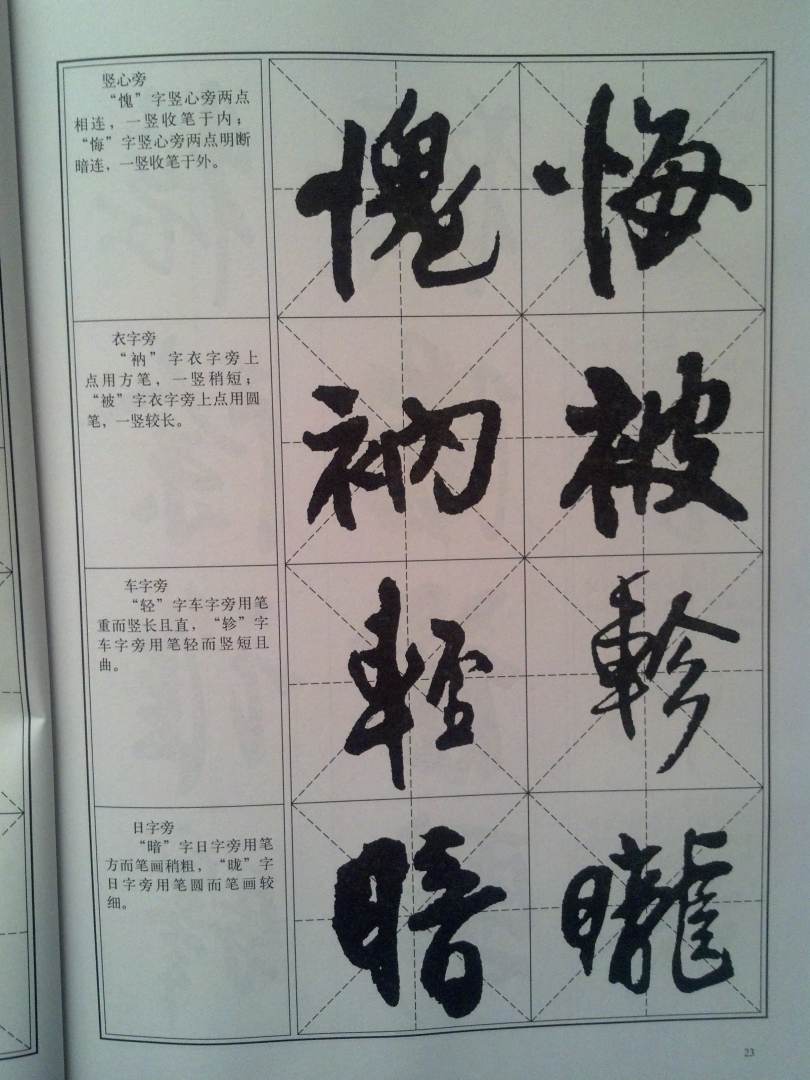 竖心旁
“愧”字竖心旁两点
相连，一竖收笔于内；
“悔”字竖心旁两点明断
暗连，一竖收笔于外。
愧 悔
衣字旁
“衲”字衣字旁上
点用方笔，一竖稍短；
“被”字衣字旁上点用圆
笔，一竖较长。
衲 被
车字旁
“轻”字车字旁用笔
重而竖长且直，“轸”字
车字旁用笔轻而竖短且
曲。
輕 軫
日字旁
“暗”字日字旁用笔
方而笔画稍粗，“昽”字
日字旁用笔圆而笔画较
细。
暗 曨
23